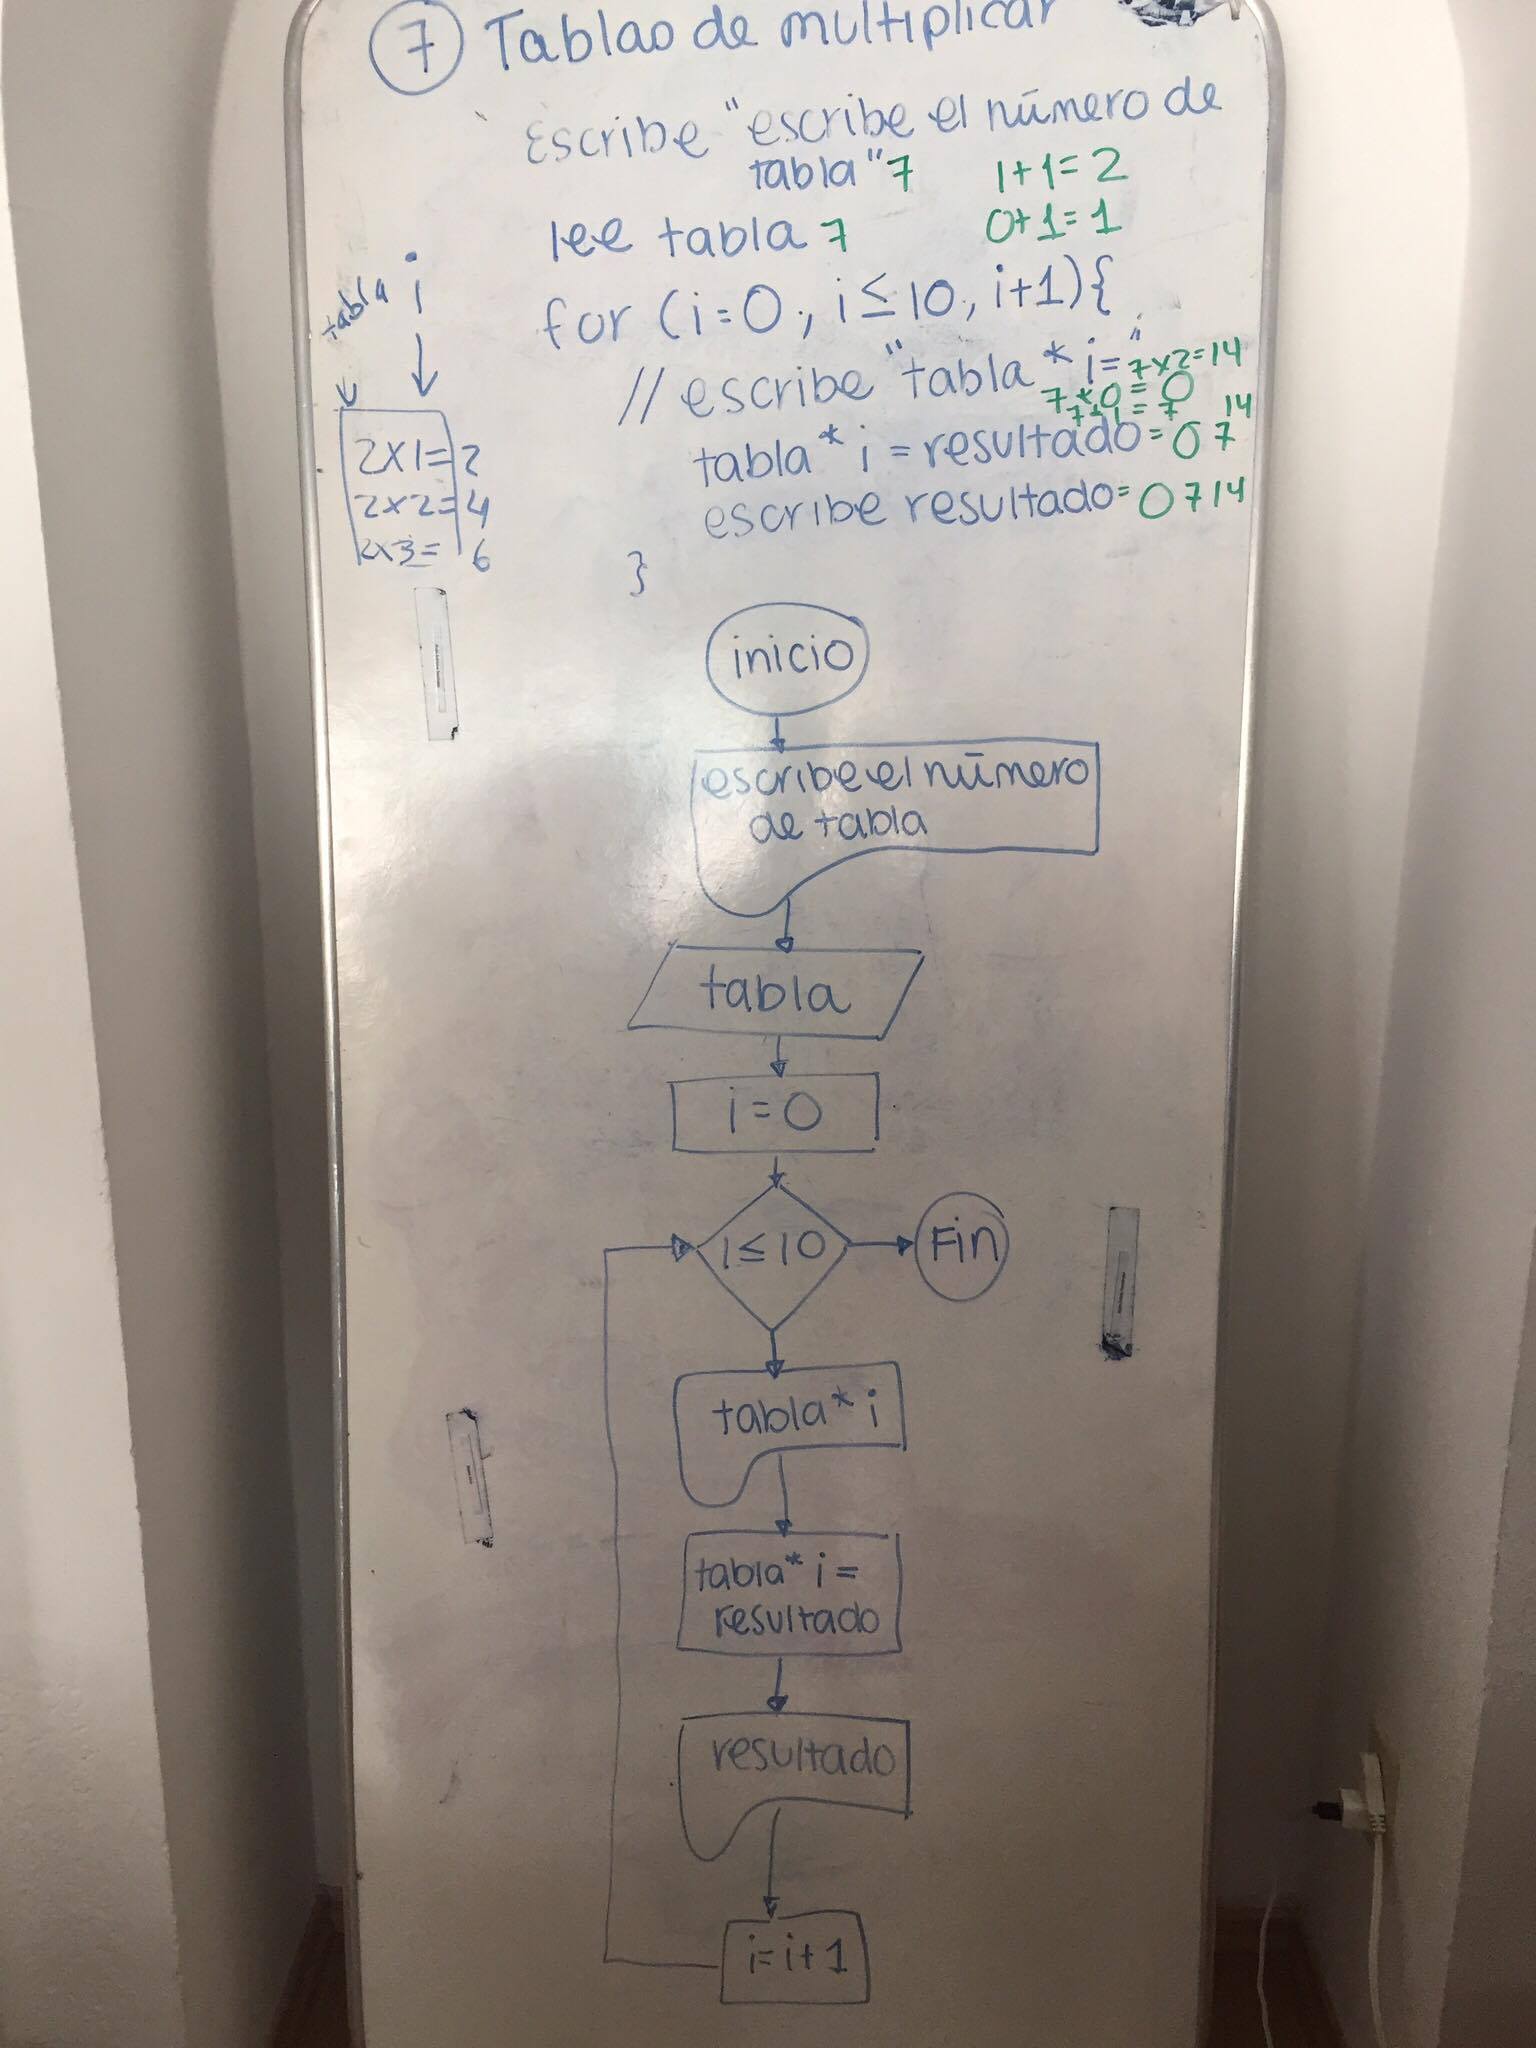 7 Tablas de multiplicar
Escribe "escribe el número de
tabla" 7 1+1=2
lee tabla 7 0+1=1
tabla i
for (i=0, i≤10, i+1){
// escribe "tabla * i=" 7x2=14
7x0=0
7x1=7 14
tabla * i = resultado= 0 7
escribe resultado= 0 7 14
}
2x1=2
2x2=4
2x3=6
inicio
escribe el número
de tabla
tabla
i=0
i≤10
Fin
tabla * i
tabla * i =
resultado
resultado
i=i+1